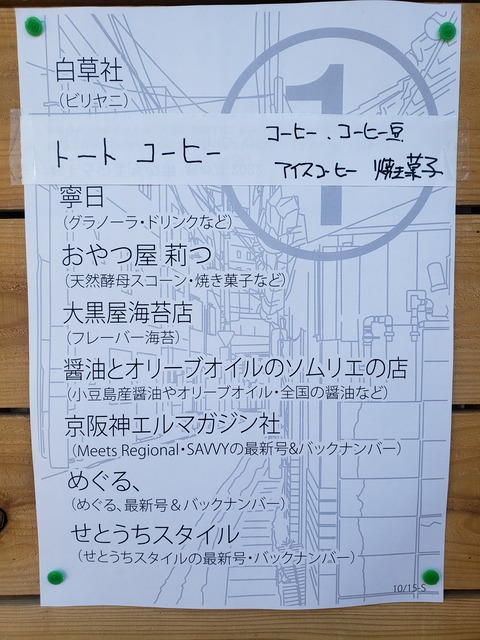 1
白草社
（ビリヤニ）
トートコーヒー
コーヒー、コーヒー豆
アイスコーヒー 焼き菓子
寧日
（グラノーラ・ドリンクなど）
おやつ屋 莉つ
（天然酵母スコーン・焼き菓子など）
大黒屋海苔店
（フレーバー海苔）
醤油とオリーブオイルのソムリエの店
（小豆島産醤油やオリーブオイル・全国の醤油など）
京阪神エルマガジン社
（Meets Regional・SAVVYの最新号&バックナンバー）
めぐる、
（めぐる、最新号＆バックナンバー）
せとうちスタイル
（せとうちスタイルの最新号・バックナンバー）
10/15-S